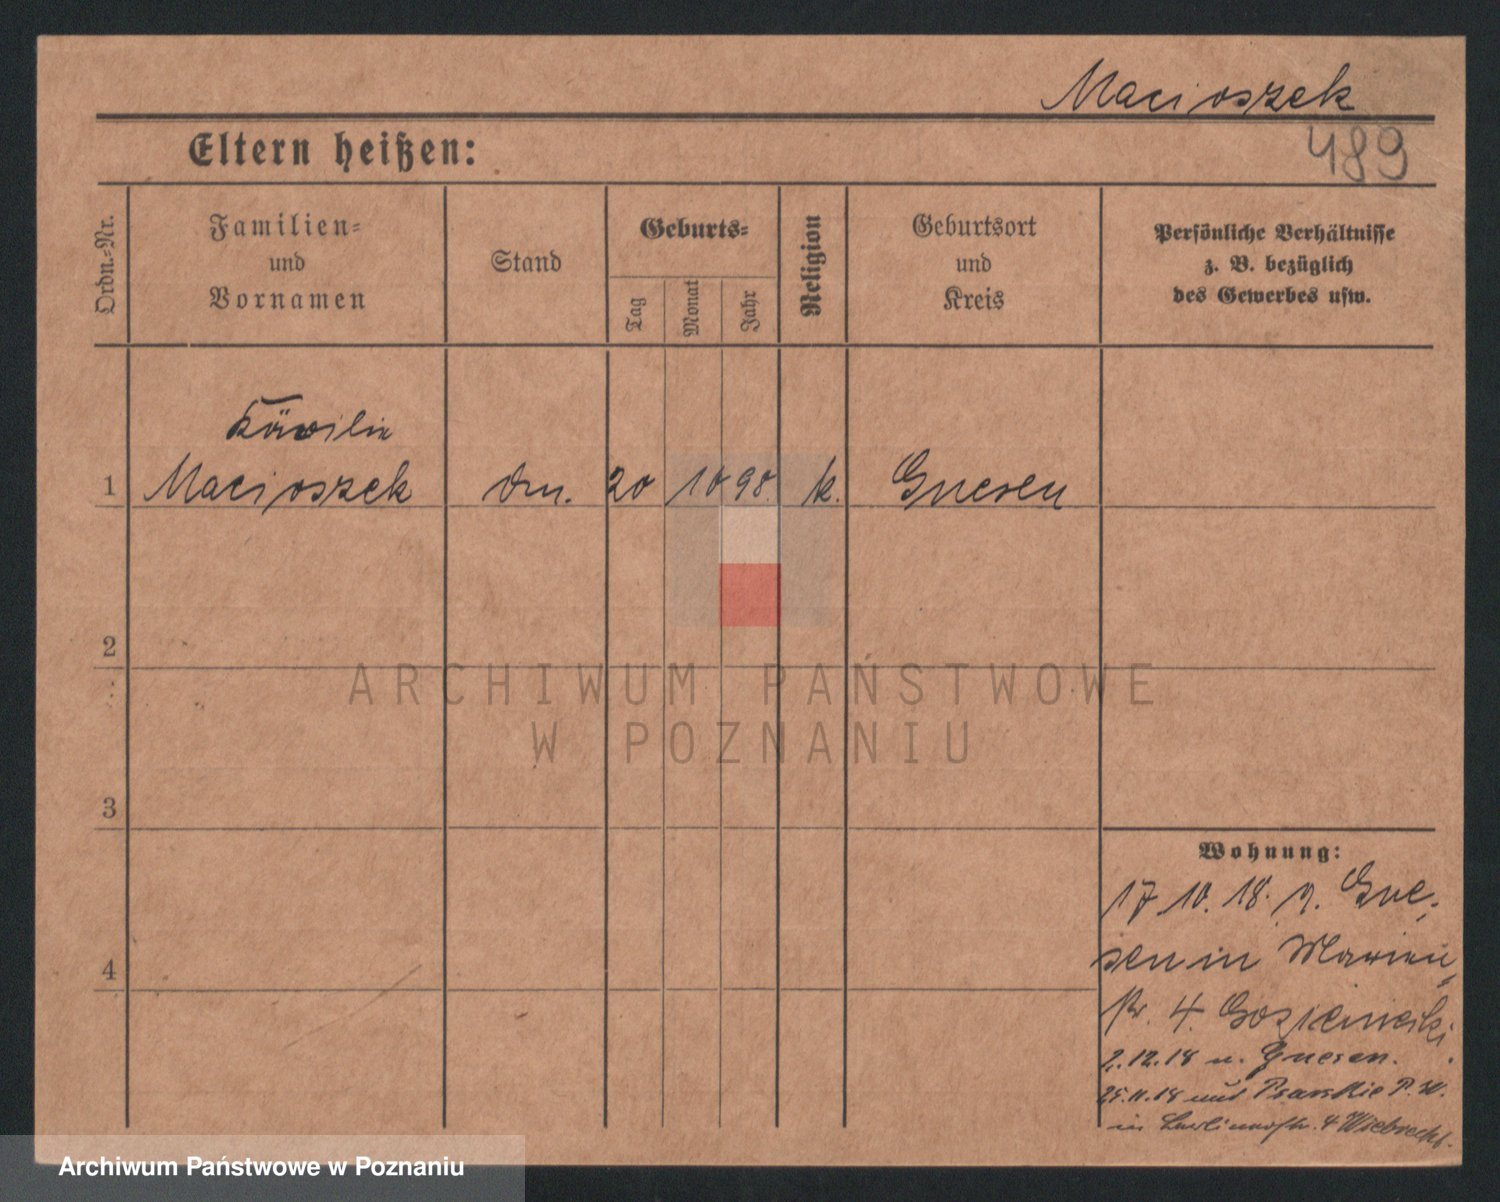 Macioszek
489
Eltern heißen:
Ordn.-Nr.
Familien-
und
Vornamen
Stand
Geburts-
Tag
Monat
Jahr
Religion
Geburtsort
und
Kreis
Persönliche Verhältnisse
z. B. bezüglich
des Gewerbes usw.
Cäcilie
1 Macioszek 20 10 98 k. Gnesen
2
3
4
ARCHIWUM PAŃSTWOWE
W POZNANIU
Wohnung:
17. 10. 18. n. Gne-
sen in
4.
2.12.18 n. Gnesen.
25.11.18 P. W.
in 4 Wiebrecht.
Archiwum Państwowe w Poznaniu